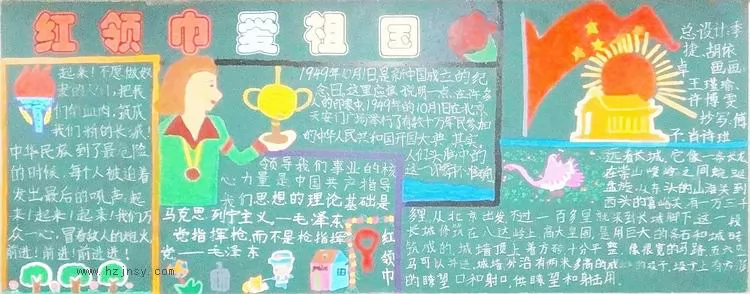 红领巾爱祖国
起来！不愿做奴
隶的人们，把我
们的血肉，筑成
我们新的长城！
中华民族到了最危险
的时候，每个人被迫着
发出最后的吼声。起
来！起来！起来！我们万
众一心，冒着敌人的炮火，
前进！前进！前进进！
www.hzjnsy.com
1949年10月1日是新中国成立的纪
念日。这里应该说明一点，在许多
人的印象中，1949年的10月1日在北京
天安门广场举行了有数十万军民参加
的中华人民共和国开国大典。其实，
人们头脑中的
这一
领导我们事业的核
心力量是中国共产
我们思想的理论基础是
马克思列宁主义。—毛泽东
党指挥枪，而不是枪指挥
党—毛泽东
红领巾
总设计：季
捷、胡依
王瑾瑜、
许博雯
抄写：傅
子、肖诗琪
远看长城，它像一条长龙，
在崇山峻岭之间蜿蜒
盘旋。从东头的山海关到
西头的嘉峪关有一万三千
里。从北京出发，不过一百多里就来到长城脚下。这一段
长城修筑在八达岭上，高大坚固，是用巨大的条石和城砖
筑成的。城墙顶上着方砖，十分平整，像很宽的马路，五六匹
马可以并进。城墙外沿有两米多高的成排的垛子，垛子上有方形
的瞭望口和射口，供瞭望和射击用。